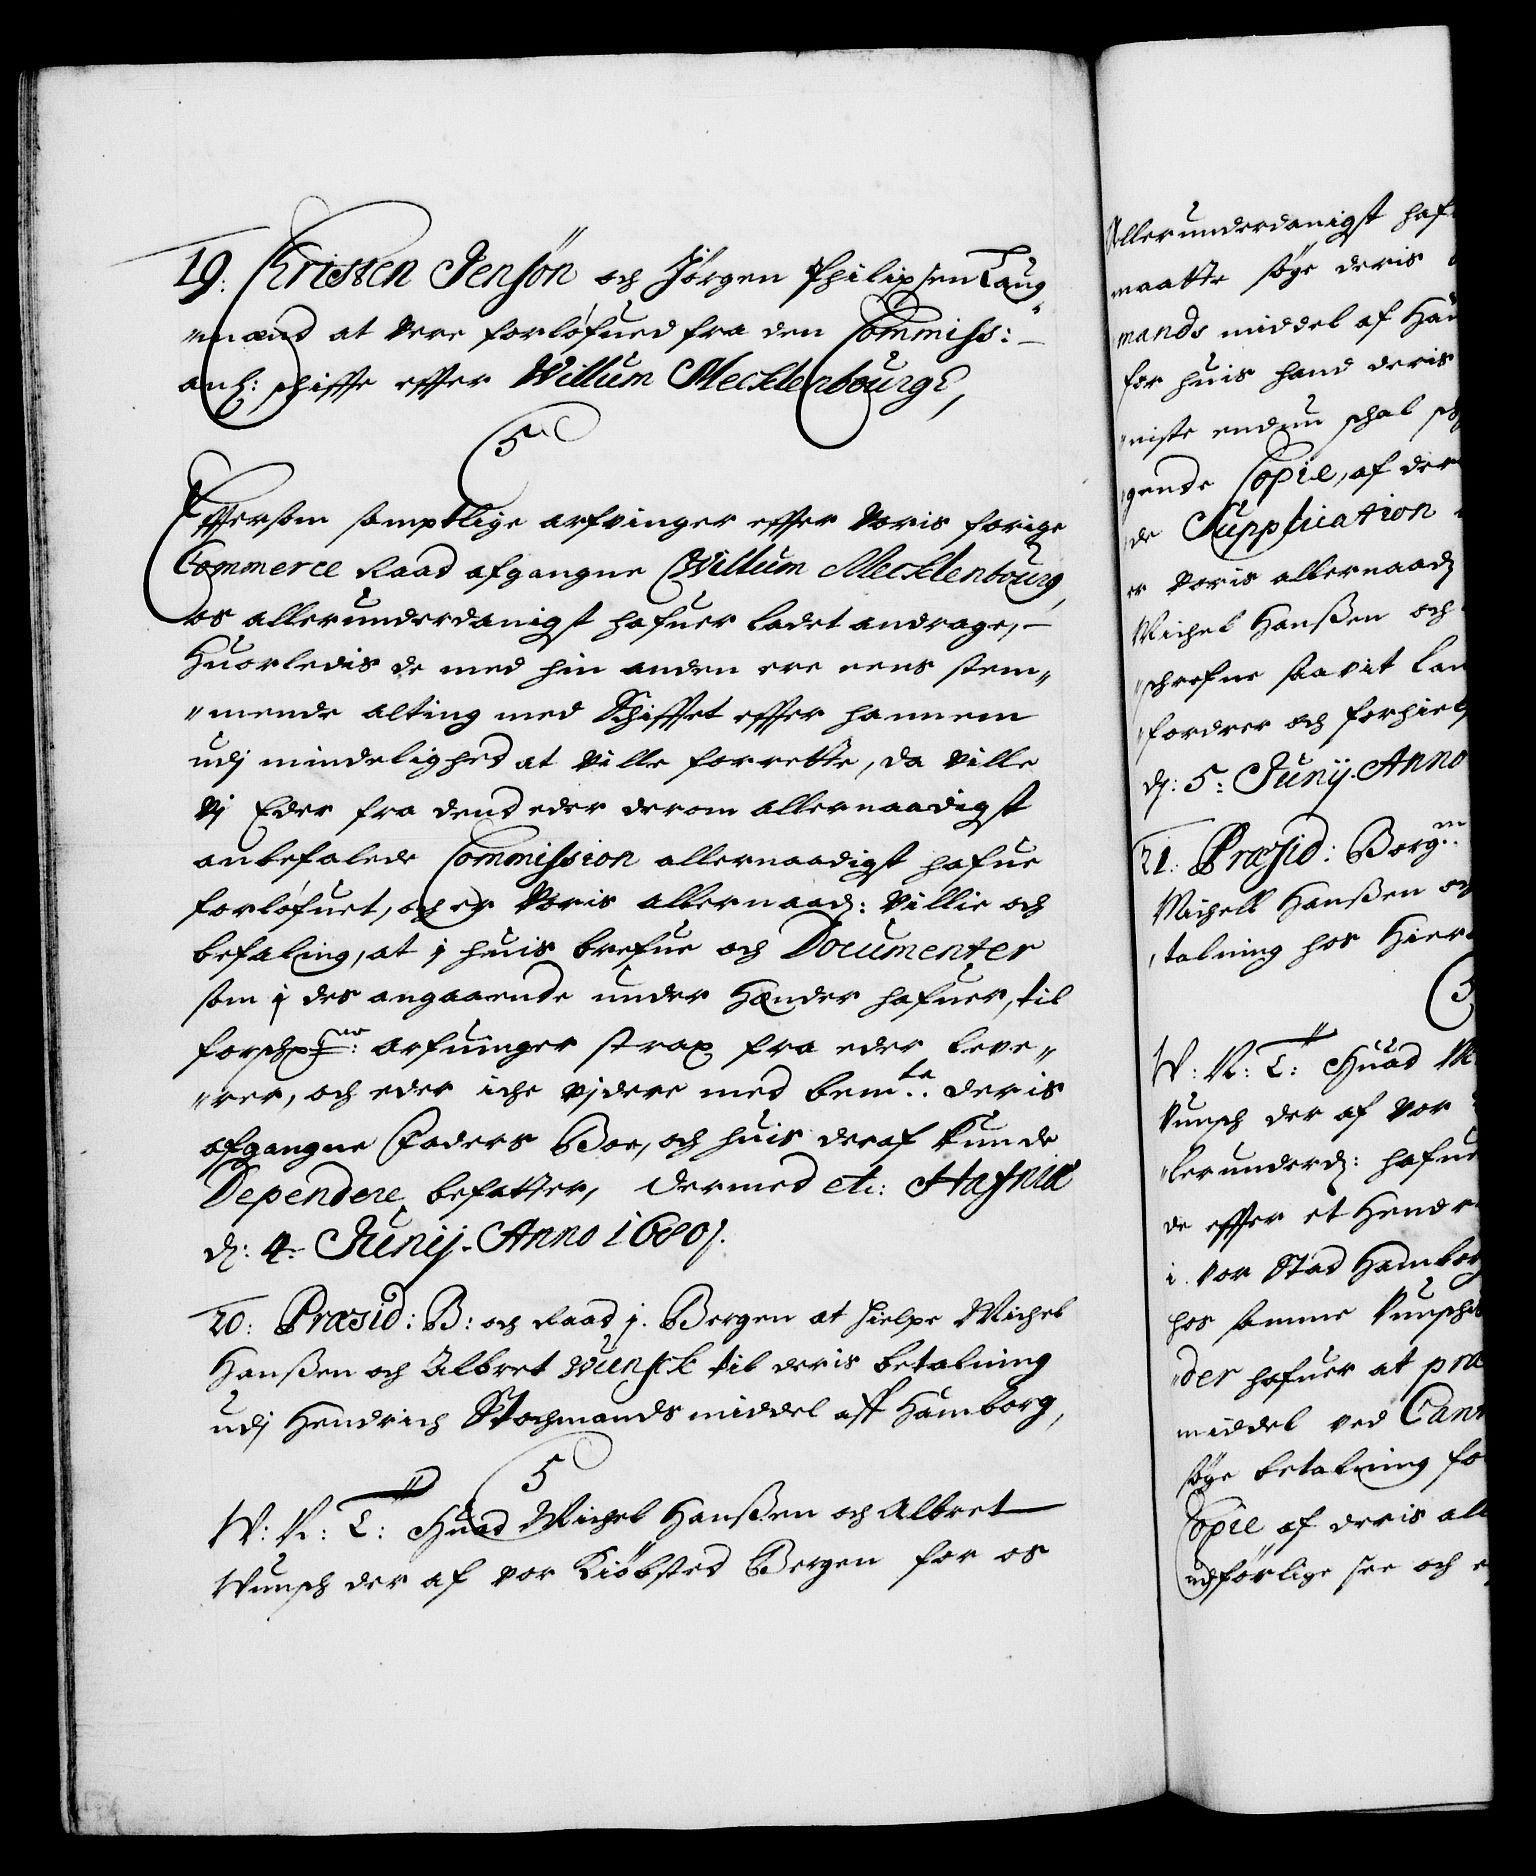 19: Christen Jensøn och Jørgen Philipsen Laug-
"mænd at vere forløfued fra den Commiss:
anl: schiffte effter Willum Mecklenbourg,
C5
Effterson samptlige arfvinger effter Voris forige
Commerce Raad afgangne Willum Mecklenbourg,
os allerunderdanigst hafuer ladet andrage,
Huorledis de med hin anden ere eens stem"
"mende alting med Schifftet effter hannem
udj mindelighed at ville forrette, da ville
Vj Eder fra dend eder derom allernaadigst
anbefalede Commission allernaadigst hafue
forløfuet, och er Voris allernaad: Villie och
befaling, at j huis brefue och Documenter
som j des angaaende under Hænder hafuer, til
forschr:ne: arfuinger strax fra eder leve"
"rer, och eder iche vjdere med bem:te deris
afgangne Faders Boe, och huis deraf kunde
Dependere befatter, dermed etc: Hafniæ
d: 4: Junij. Anno 1680.
20: Præsid: B: och Raad j. Bergen at hielpe Michel
Hanßen och Albret Wunsch til deris betalning
udj Hendrich Stochmands middel aff Hamborg,
C5
W: V: T: Huad Michel Hanßen och Albret
Wunsch der af vor Kiøbsted Bergen for os
Allerunderdanigst haf
maatte søge deris
mands middel af Ham
for huis hand deris
"niste endnu schal
gende Copie, af der
de Supplication
er Voris allernaad:
Michel Hanßen och
"schrefne saavit Lan
"fordrer och forhielp
d: 5: Junij. Anno
21: Præsid: Borgm:
Michell Hanßen och
talning hos Hier
C5
W: V: T: Huad Mi
Wunsch der af vor
"lerunderd: hafue
de effter et Hendr
i vor Stad Hamborg
hos samme Wunsch
"der hafuer at præ
middel ved Can
søge betalning for
Copie af deris all
udførlige see och er